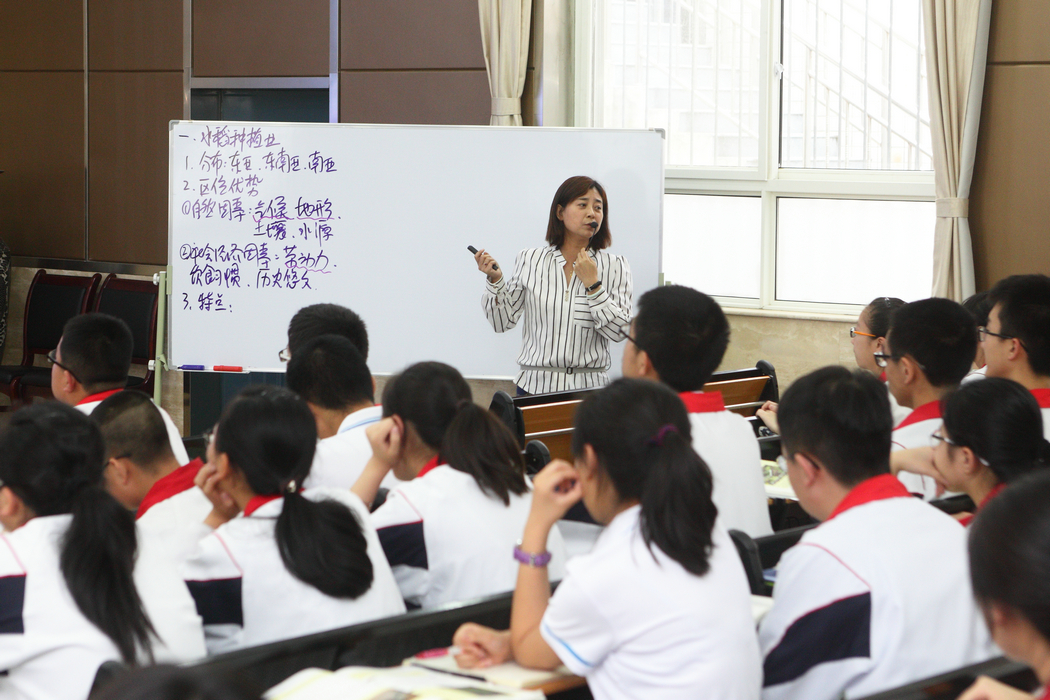 一.水稻种植业
1.分布:东亚、东南亚、南亚
2.区位优势
①自然因素:气候 地形.
土壤、水源
②社会经济因素:劳动力.
饮食习惯、历史悠久
3.特点: